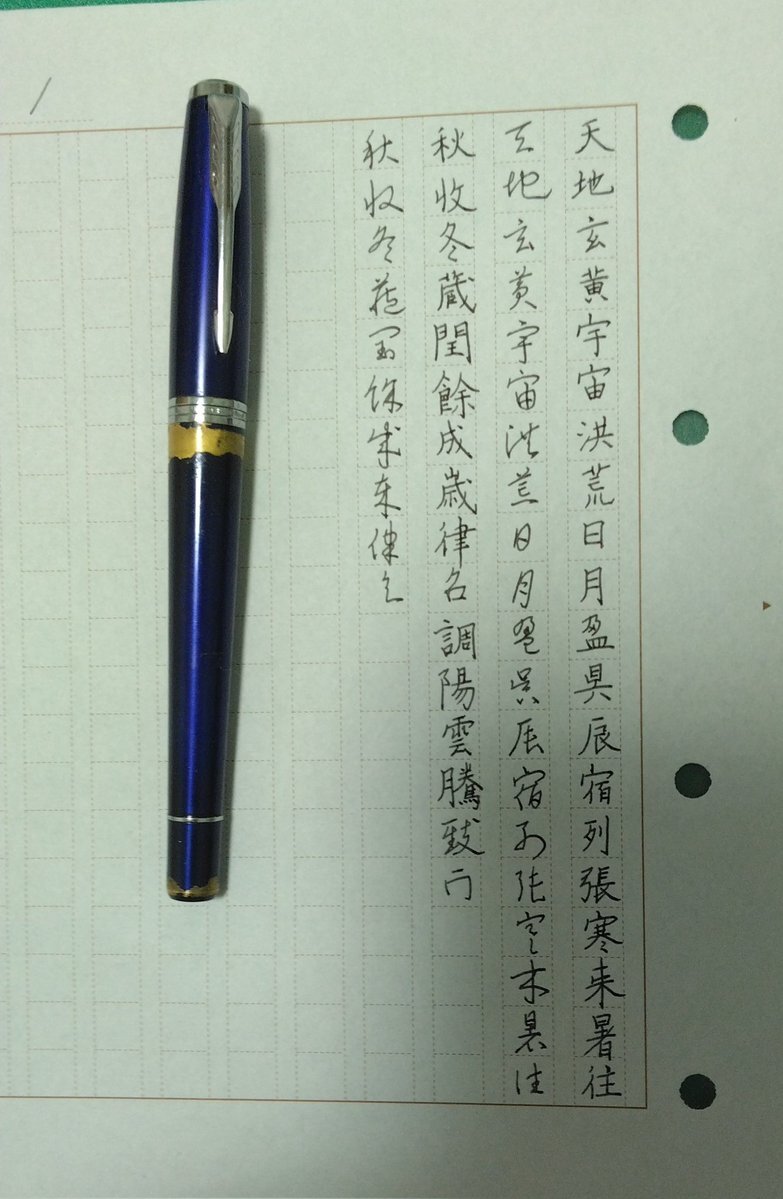 天地玄黄宇宙洪荒日月盈昃辰宿列張寒来暑往
天地玄黄宇宙洪荒日月盈昃辰宿列張寒来暑往
秋收冬蔵閏餘成歳律名調陽雲騰致雨
秋收冬蔵閏餘成歳律